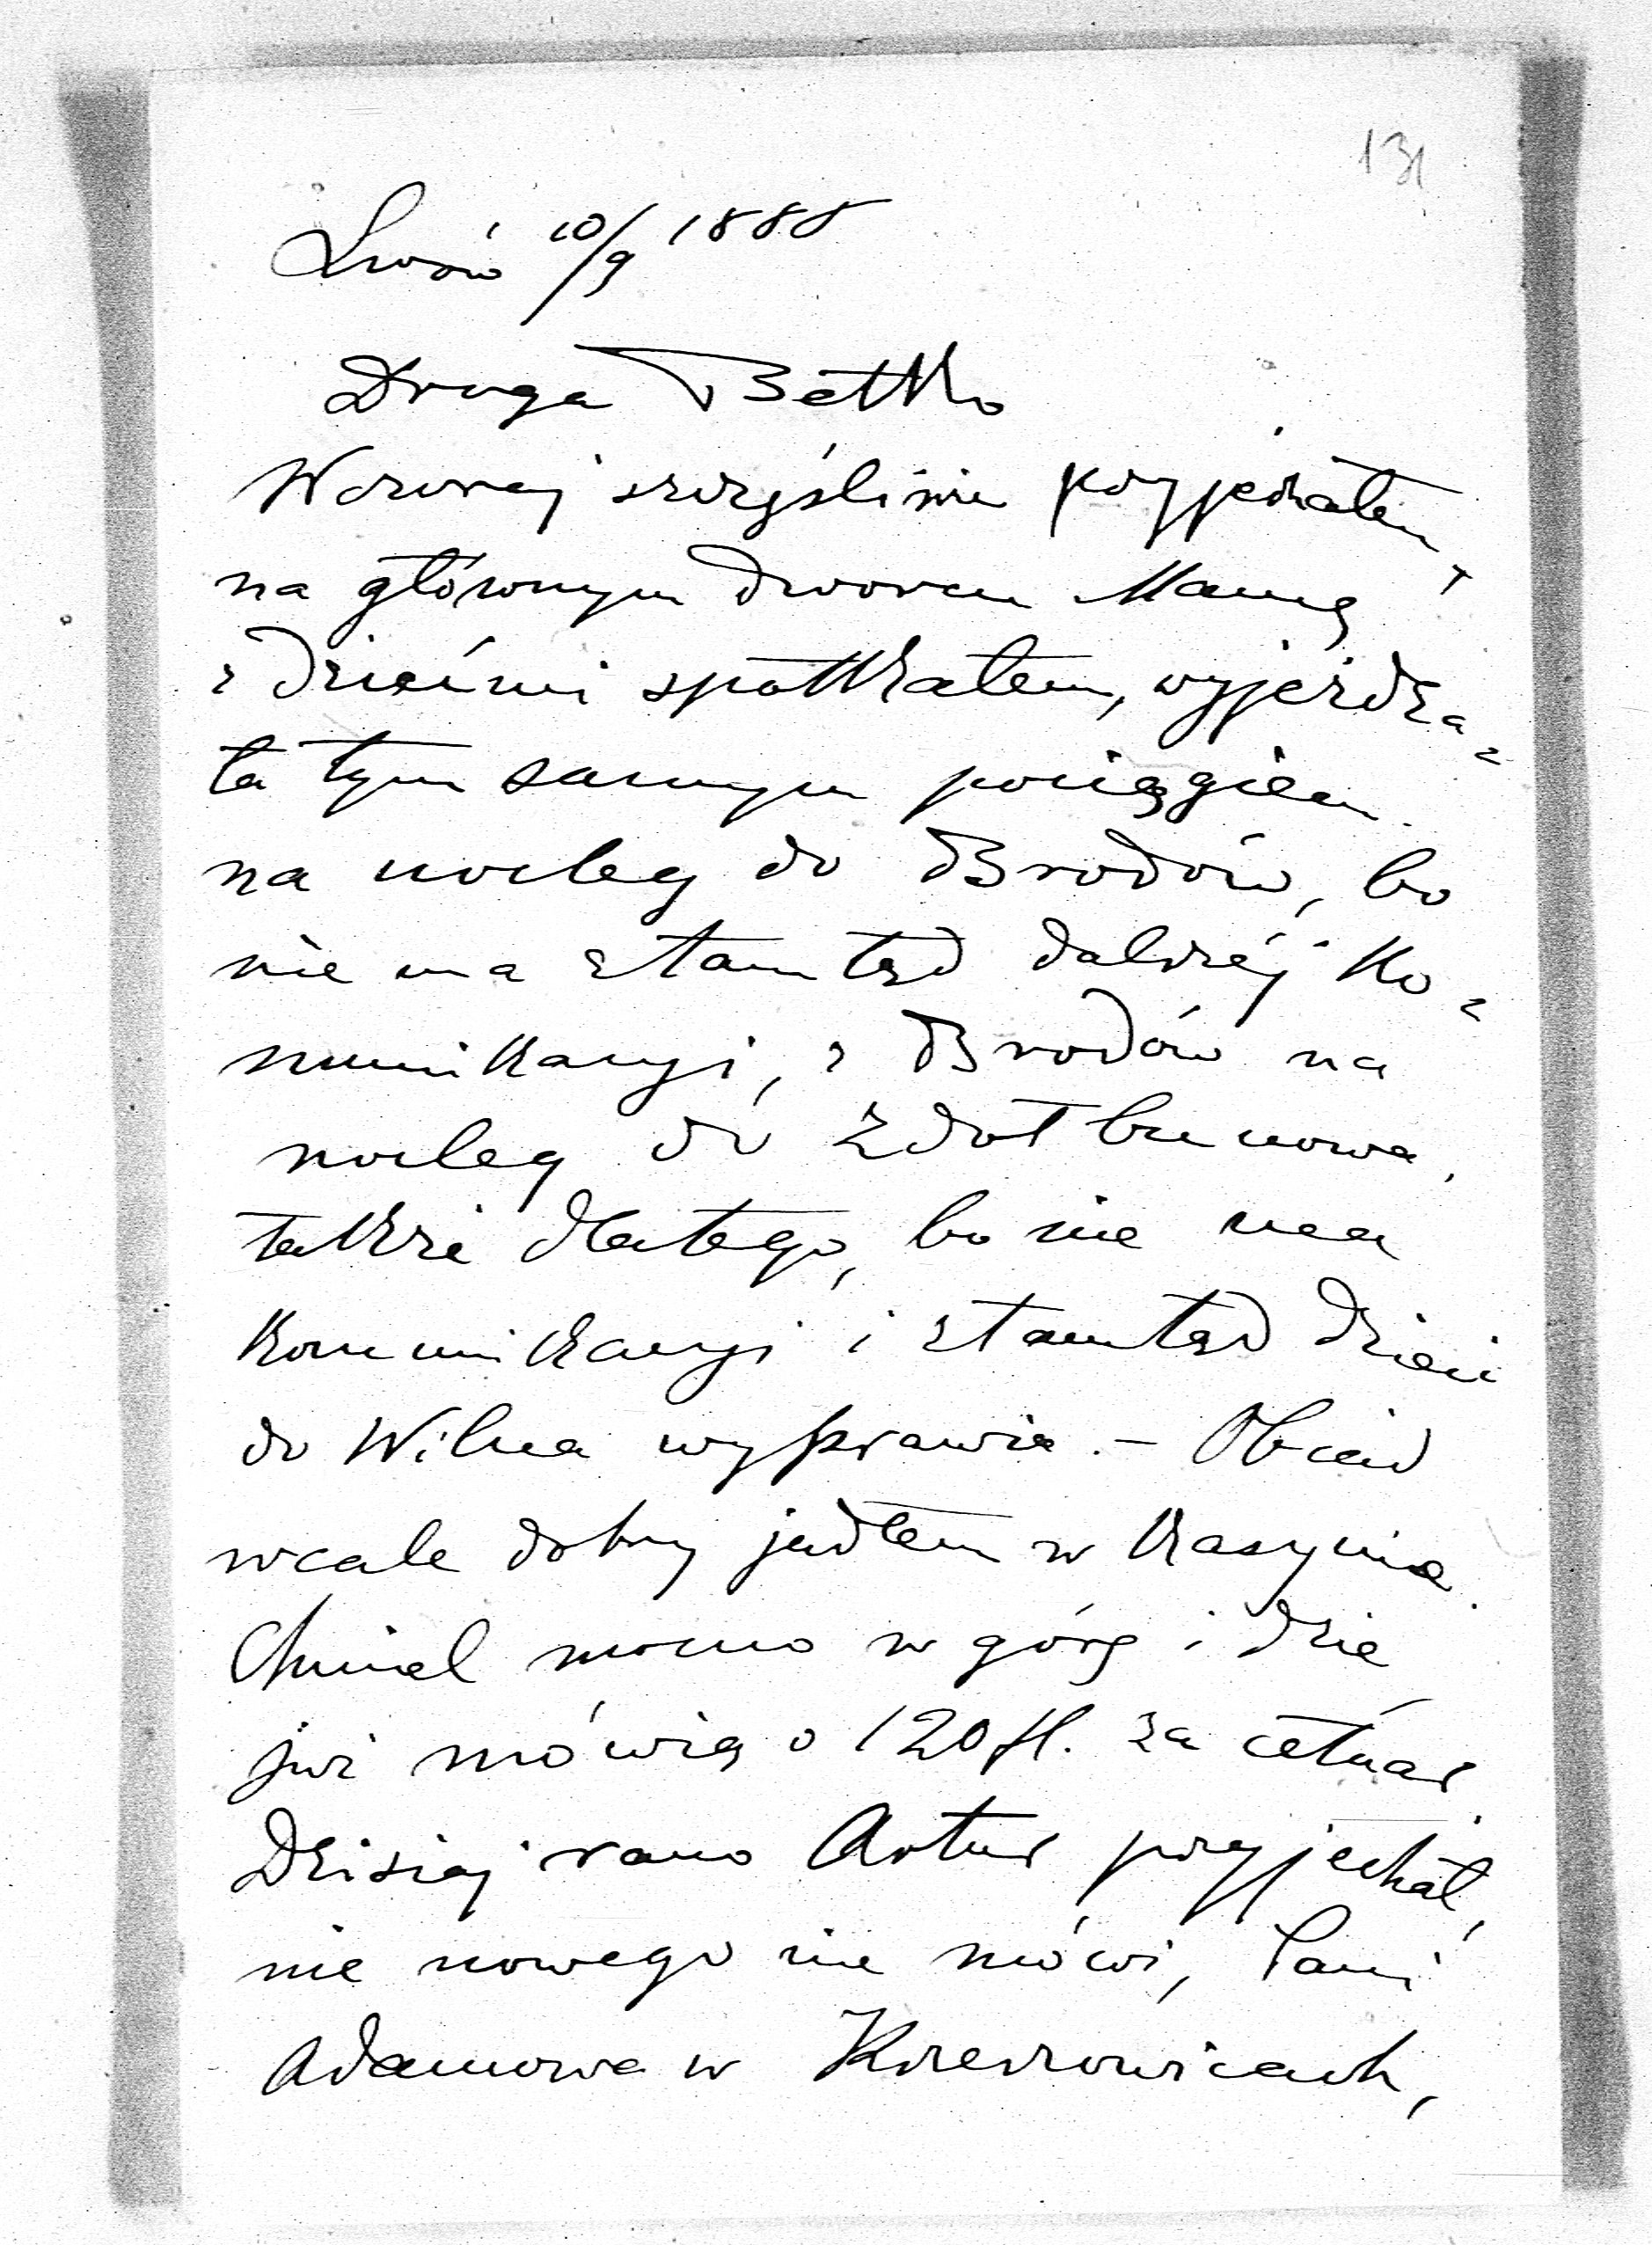 131
Lwów 10/9 1888
Droga Betko
Wczoraj szczęśliwie przyjechałem,
na głównym dworcu Mamę
z dziećmi spotkałem, wyjeżdża=
ła tym samym pociągiem
na nocleg do Brodów, bo
nie ma ztamtąd dalszéj ko=
munikacyi, z Brodów na
nocleg do Zdołbunowa,
także dlatego, bo nie ma
komunikacyi i ztamtąd dzieci
do Wilna wyprawia. – Obiad
wcale dobry jadłem w Kasynie.
Chmiel mocno w górę idzie
już mówią o 120 fl. za cetnar.
Dzisiaj rano Artur przyjechał,
nic nowego nie mówi, Pani
Adamowa w Krzeszowicach,